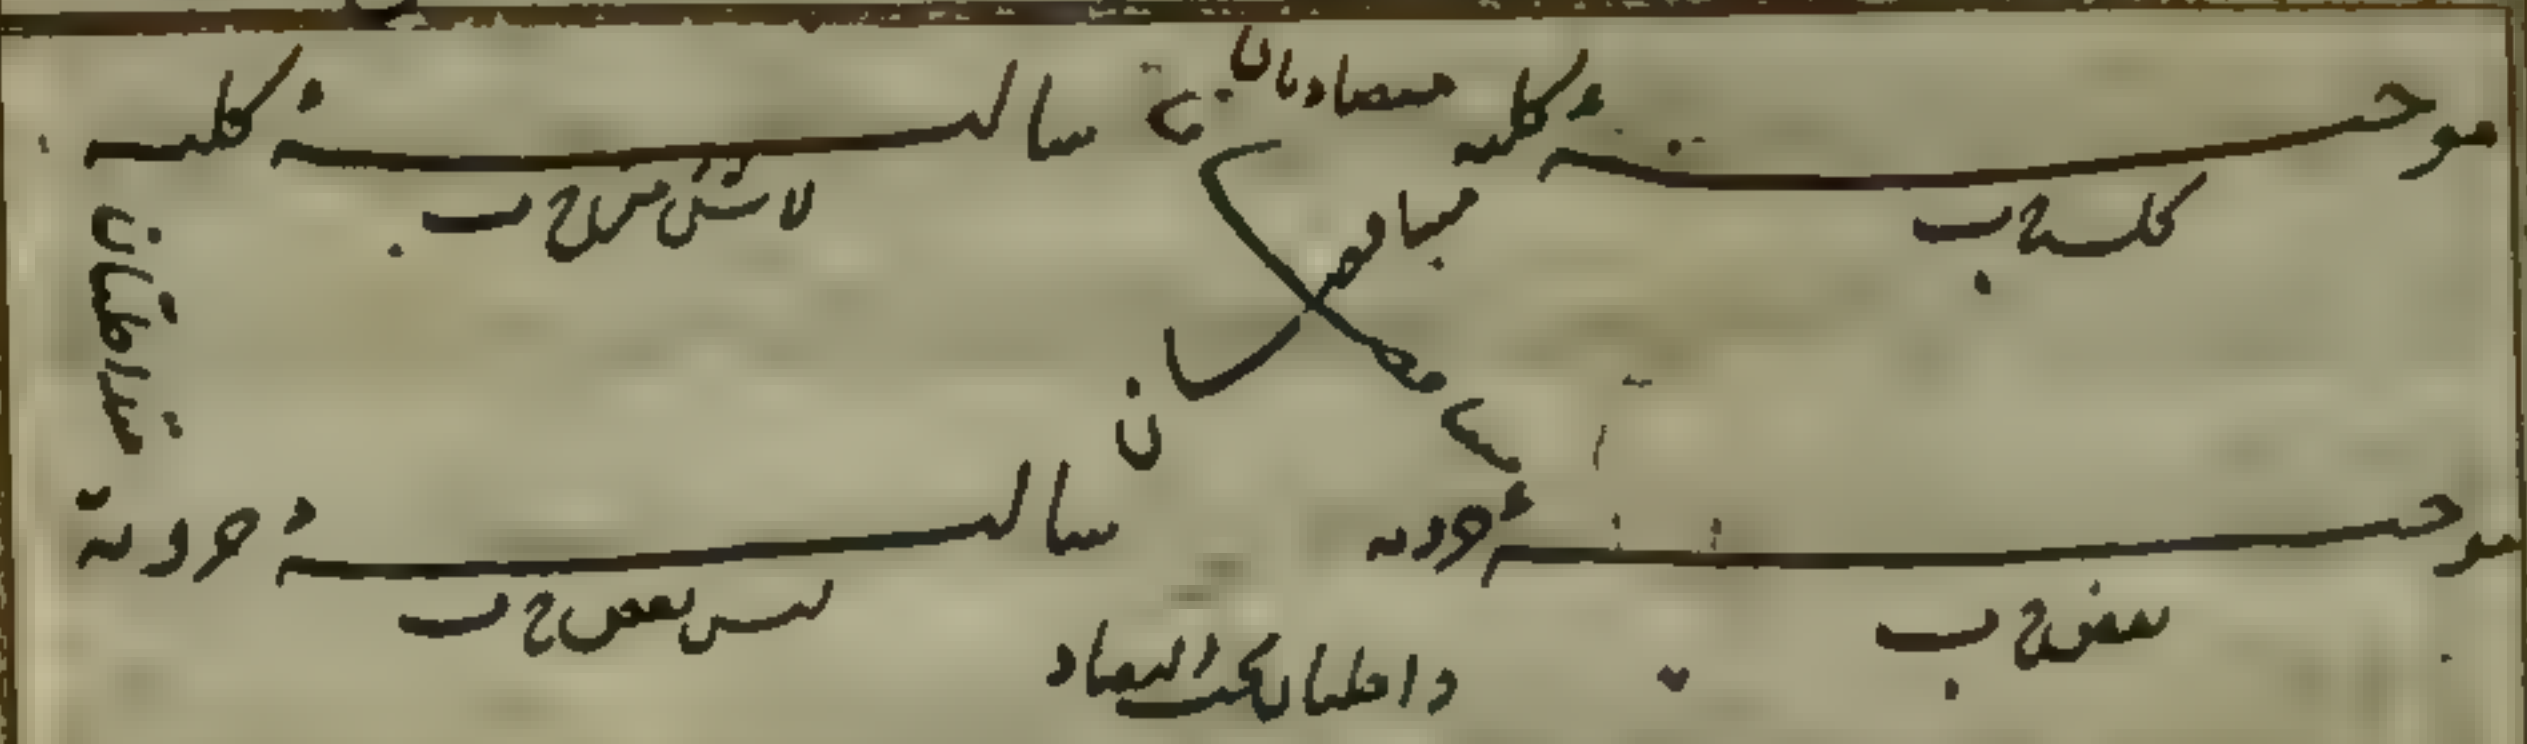 موجبة كلية متضادتان سالبة كلية
كل ج ب لا شئ من ج ب
متناقضتان
متناقضتان
متداخلتان
موجبة جزوية سالبة جزوية
بعض ج ب ليس بعض ج ب
داخلتان تحت التضاد